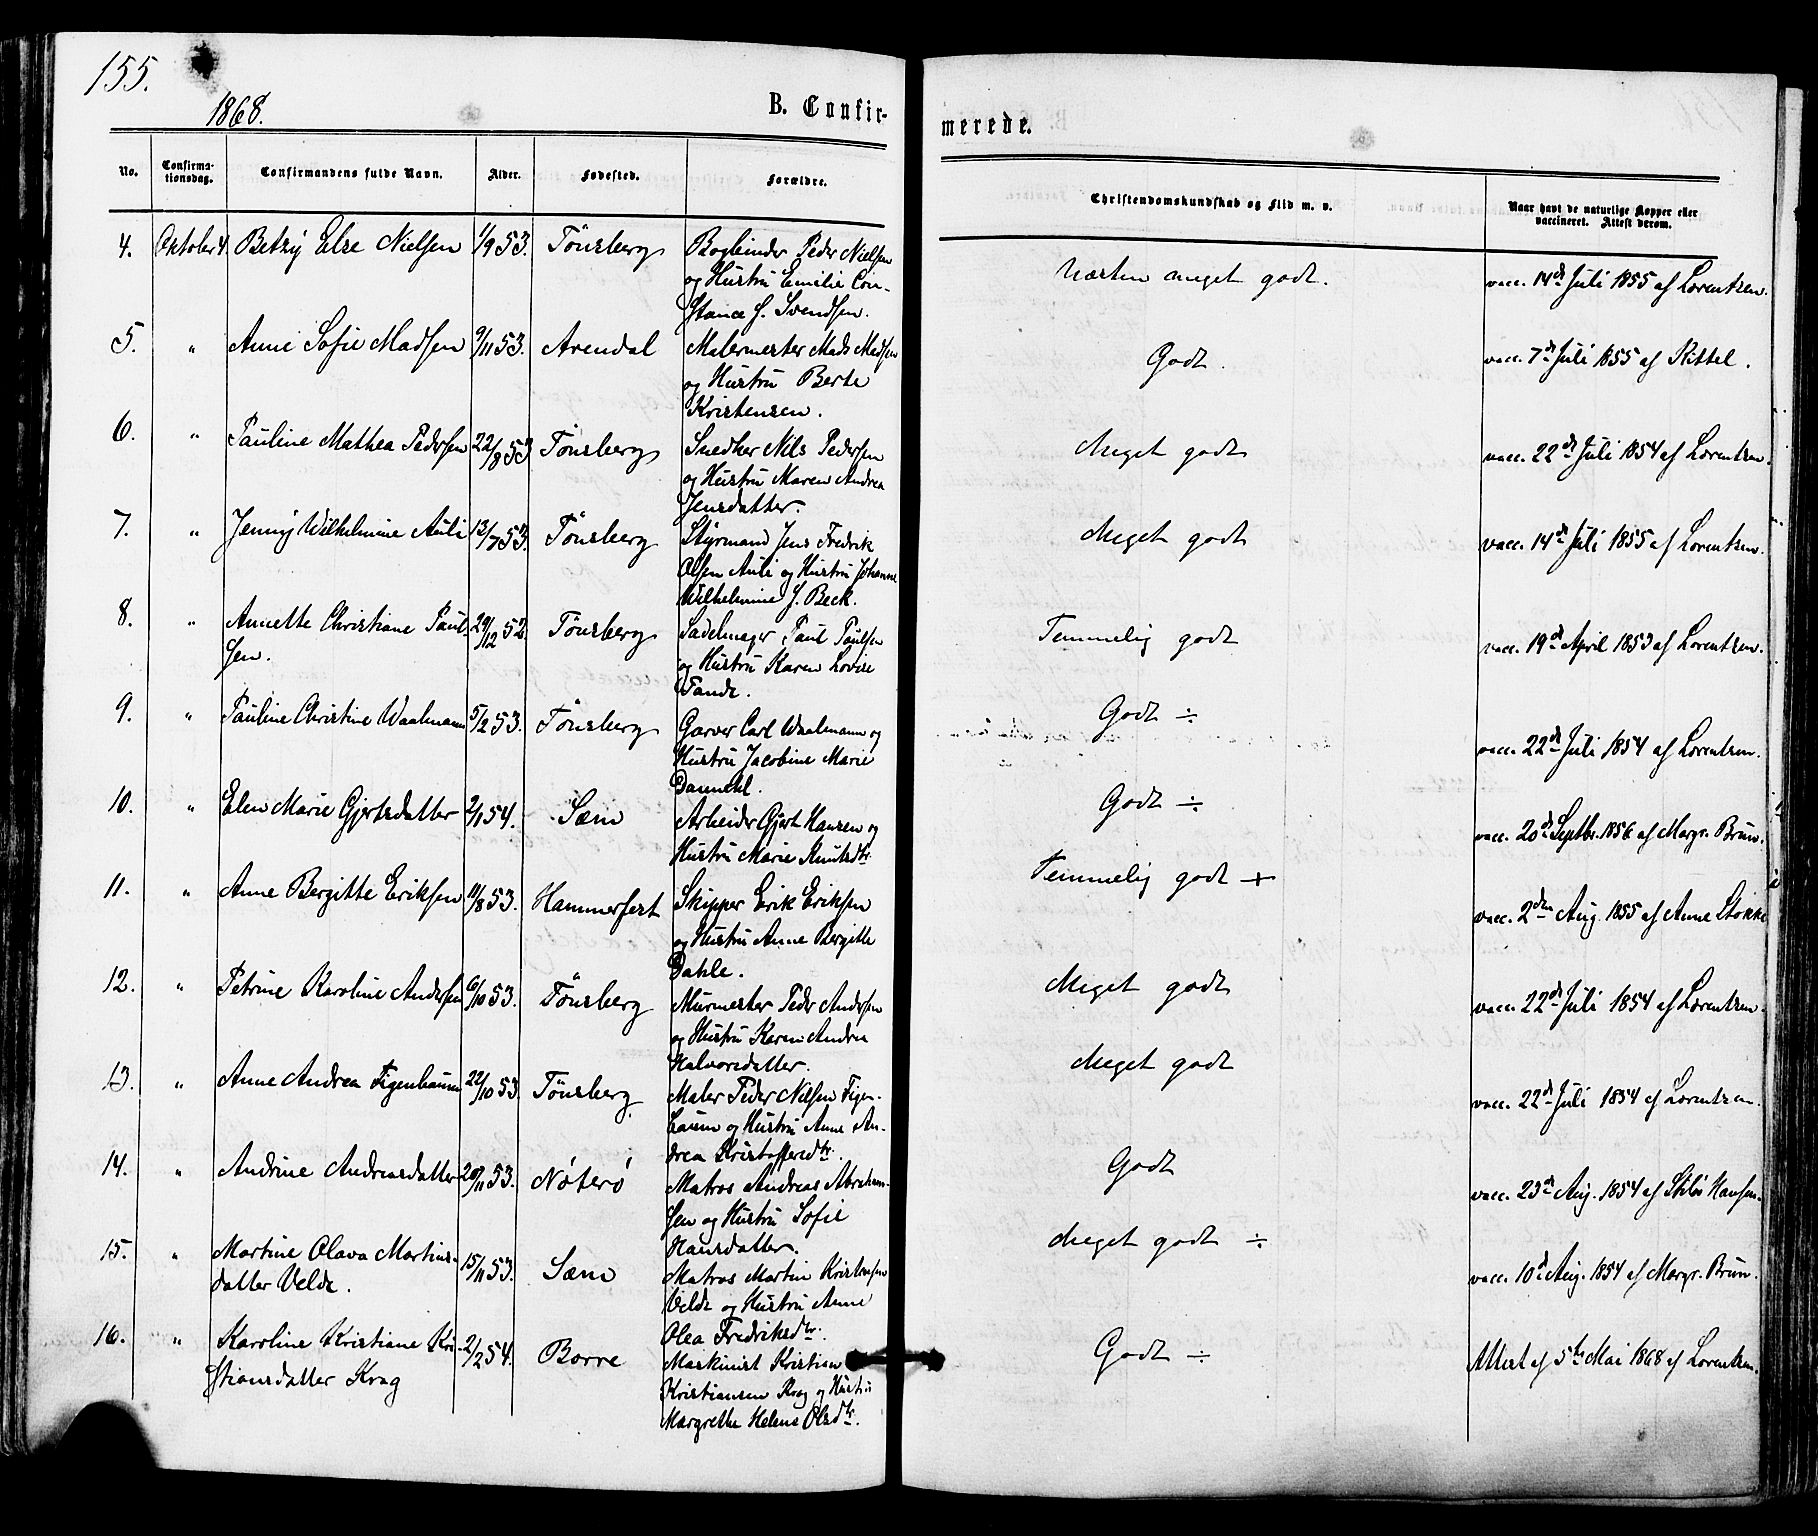 155.
1868.
B. Confir-
merede.
No.
Confirma-
tionsdag.
Confirmandens fulde Navn.
Alder.
Fødested.
Forældre.
Christendomskundskab og Flid m. v.
Naar havt de naturlige Kopper eller
vaccineret. Attest derom.
4. Oktober 4. Betzy Else Nielsen 1/9 53. Tönsberg Bogbinder Peder Nielsen
og Hustru Emilie Con-
stance J. Svendsen.
Næsten meget godt. vacc. 14de Juli 1855 af Lorentzen.
5. " Anne Sofie Madsen 9/11 53. Arendal Malermester Mads Madsen
og Hustru Berte
Kristensen.
Godt. vacc. 7de Juli 1855 af Kittel.
6. " Pauline Mathea Pedersen 22/8 53 Tönsberg Snedker Nils Pedersen
og Hustru Maren Andrea
Jensdatter.
Meget godt vacc. 22de Juli 1854 af Lorentzen.
7. " Jenny Wilhelmine Auli 13/7 53. Tönsberg Styrmand Jens Fredrik
Olsen Auli og Hustru Johanne
Wilhelmine J. Beck.
Meget godt vacc. 14de Juli 1855 af Lorentzen.
8. " Annette Christiane Paul-
sen. 29/12 52. Tönsberg Sadelmager Paul Paulsen
og Hustru Karen Lovise
Tande.
Temmelig godt vacc. 19de April 1853 af Lorentzen.
9. " Pauline Christine Waalmann 5/2 53. Tönsberg Garver Carl Waalmann og
Hustru Jacobine Marie
Godt ÷ vacc. 22de Juli 1854 af Lorentzen.
10. " Elen Marie Gjertsdatter 2/1 54. Sæm Arbeider Gjert Hansen og
Hustru Marie Knutsdtr
Godt ÷ vacc. 20de Septbr. 1856 af Margr. Brun.
11. " Anne Bergitte Eriksen 11/8 53. Hammerfest Skipper Erik Eriksen
og Hustru Anne Bergitte
Dahle.
Temmelig godt + vacc. 2den Aug. 1855 af Anne Stokke
12. " Petrine Karoline Andersen 6/10 53. Tönsberg Murmester Peder Andersen
og Hustru Karen Andrea
Halvorsdatter.
Meget godt vacc. 22de Juli 1854 af Lorentzen.
13. " Anne Andrea Figenbaum 22/10 53. Tönsberg Maler Peder Nilsen Figen-
baum og Hustru Anne An-
drea Kristoffersdtr.
Meget godt vacc. 22de Juli 1854 af Lorentzen.
14. " Andrine Andreasdatter 20/11 53. Nöterö Matros Andreas Abraham-
sen og Hustru Sofie
Hansdatter.
Godt vacc. 23de Aug. 1854 af Hansen.
15. " Martine Olava Martins-
datter Velde. 15/11 53. Sæm Matros Martin Kristensen
Velde og Hustru Anne
Olea Fredriksdtr.
Meget godt ÷ vacc. 10de Aug. 1854 af Margr. Brun.
16. " Karoline Kristiane Kri-
stiansdatter Krag 2/2 54. Borre Maskinist Kristian
Kristiansen Krag og Hustru
Margrethe Helene Olsdtr.
Godt ÷ Attest af 5te Mai 1868 af Lorentzen.